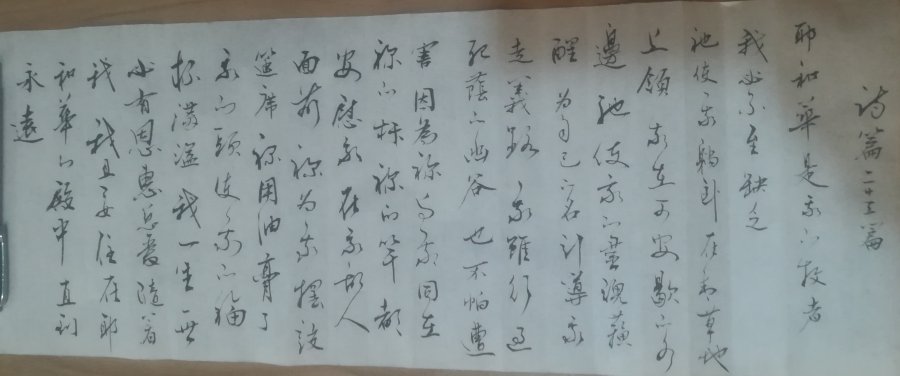 诗篇二十三篇
耶和華是我的牧者
我必不至缺乏
祂使我躺卧在青草地
上領我在可安歇的水
邊 祂使我的靈魂蘇
醒 為自己的名引導我
走義路 我雖行過
死蔭的幽谷 也不怕遭
害因為祢与我同在
祢的杖祢的竿都
安慰我 在我敌人
面前 祢为我摆设
筵席 祢用油膏了
我的頭 使我的福
杯滿溢 我一生一世
必有恩惠慈愛隨着
我 我且要住在耶
和華的殿中 直到
永遠